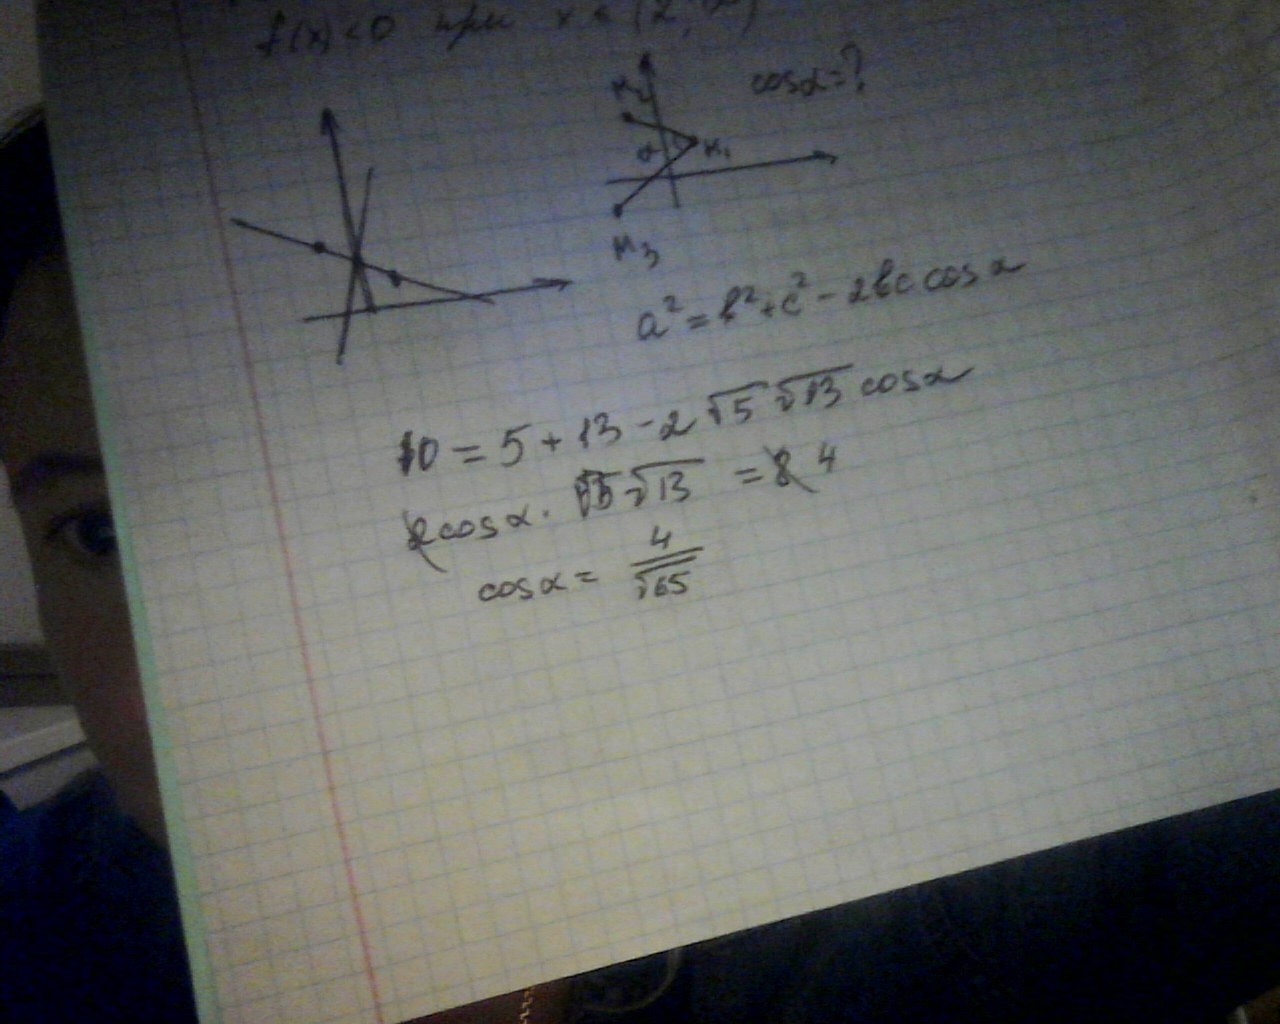 f(x) < 0 при x ∈ (2;
M₂
cosα = ?
α
M₁
M₃
a² = b² + c² - 2bc cosα
10 = 5 + 13 - 2 √5 √13 cosα
2cosα · √5 √13 = 8 4
cosα = 4/√65